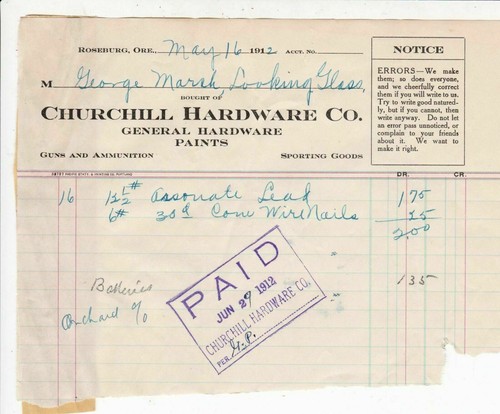 ROSEBURG, ORE., May 16 1912 ACCT. NO.
M George Marsh, Looking Glass,
BOUGHT OF
CHURCHILL HARDWARE CO.
GENERAL HARDWARE
PAINTS
GUNS AND AMMUNITION SPORTING GOODS
NOTICE
ERRORS—We make
them; so does everyone,
and we cheerfully correct
them if you will write to us.
Try to write good natured-
ly, but if you cannot, then
write anyway. Do not let
an error pass unnoticed, or
complain to your friends
about it. We want to
make it right.
DR. CR.
16 12½# Assonate Lead 1 75
6# 30d Com Wire Nails 25
2.00
Batteries 1 35
Orchard %
PAID
JUN 29 1912
CHURCHILL HARDWARE CO.
PER G.P.